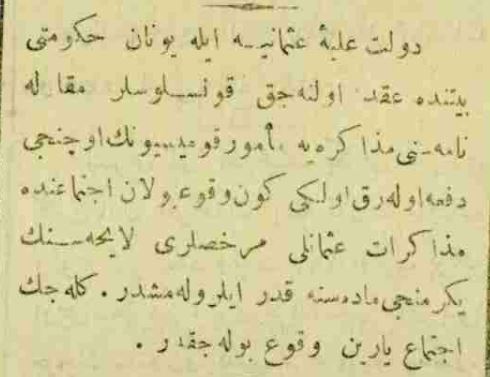 دولت علیهٔ عثمانیـه ایله یونان حکومتی
بیننده عقد اولنه‌جق قونسلوسلر مقاله
نامه‌سنی مذاکره‌یه مأمور قومیسیونك اوچنجی
دفعه اوله‌رق اولکی کون وقوعبولان اجتماعنده
مذاکرات عثمانلی مرخصلری لایحه‌سنك
یکرمنجی ماده‌سنه قدر ایلروله‌مشدر . کله‌جك
اجتماع یارین وقوع بوله‌جقدر .